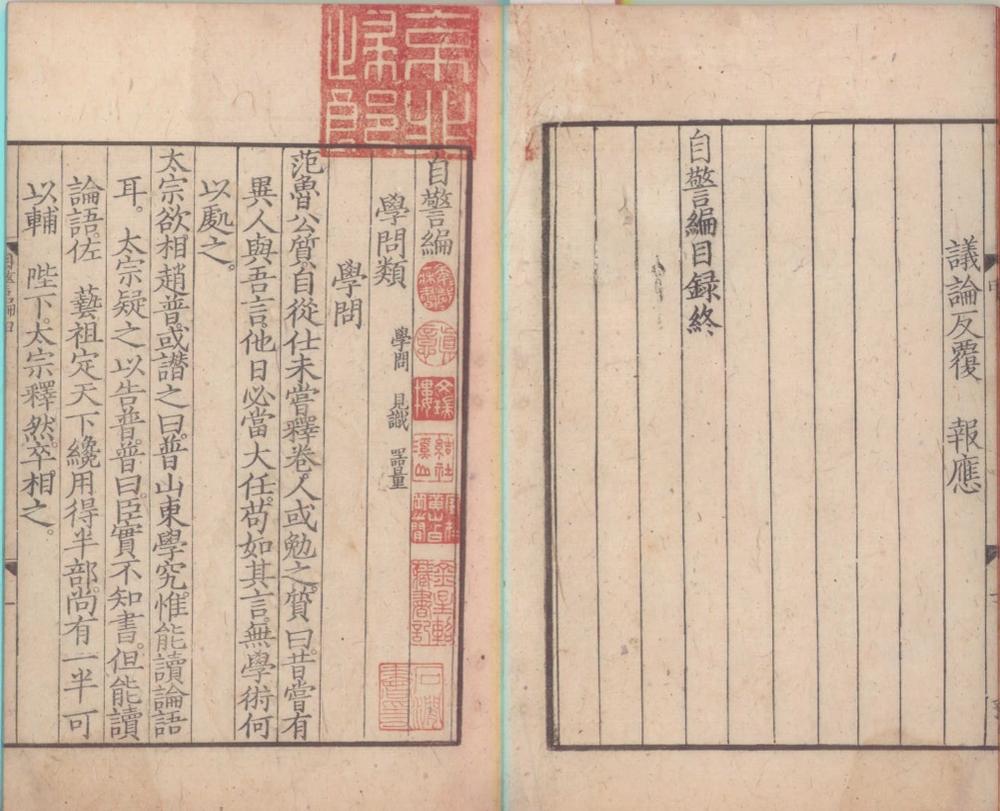 議論反覆　報應
自警編目録終
自警編
學問類
學問　見識　器量
學問
范魯公質自從仕未嘗釋卷人或勉之質曰昔嘗有
異人與吾言他日必當大任苟如其言無學術何
以處之。
太宗欲相趙普或譖之曰普山東學究惟能讀論語
耳。太宗疑之以告普普曰臣實不知書。但能讀
論語佐　藝祖定天下纔用得半部尚有一半可
以輔　陛下。太宗釋然卒相之。